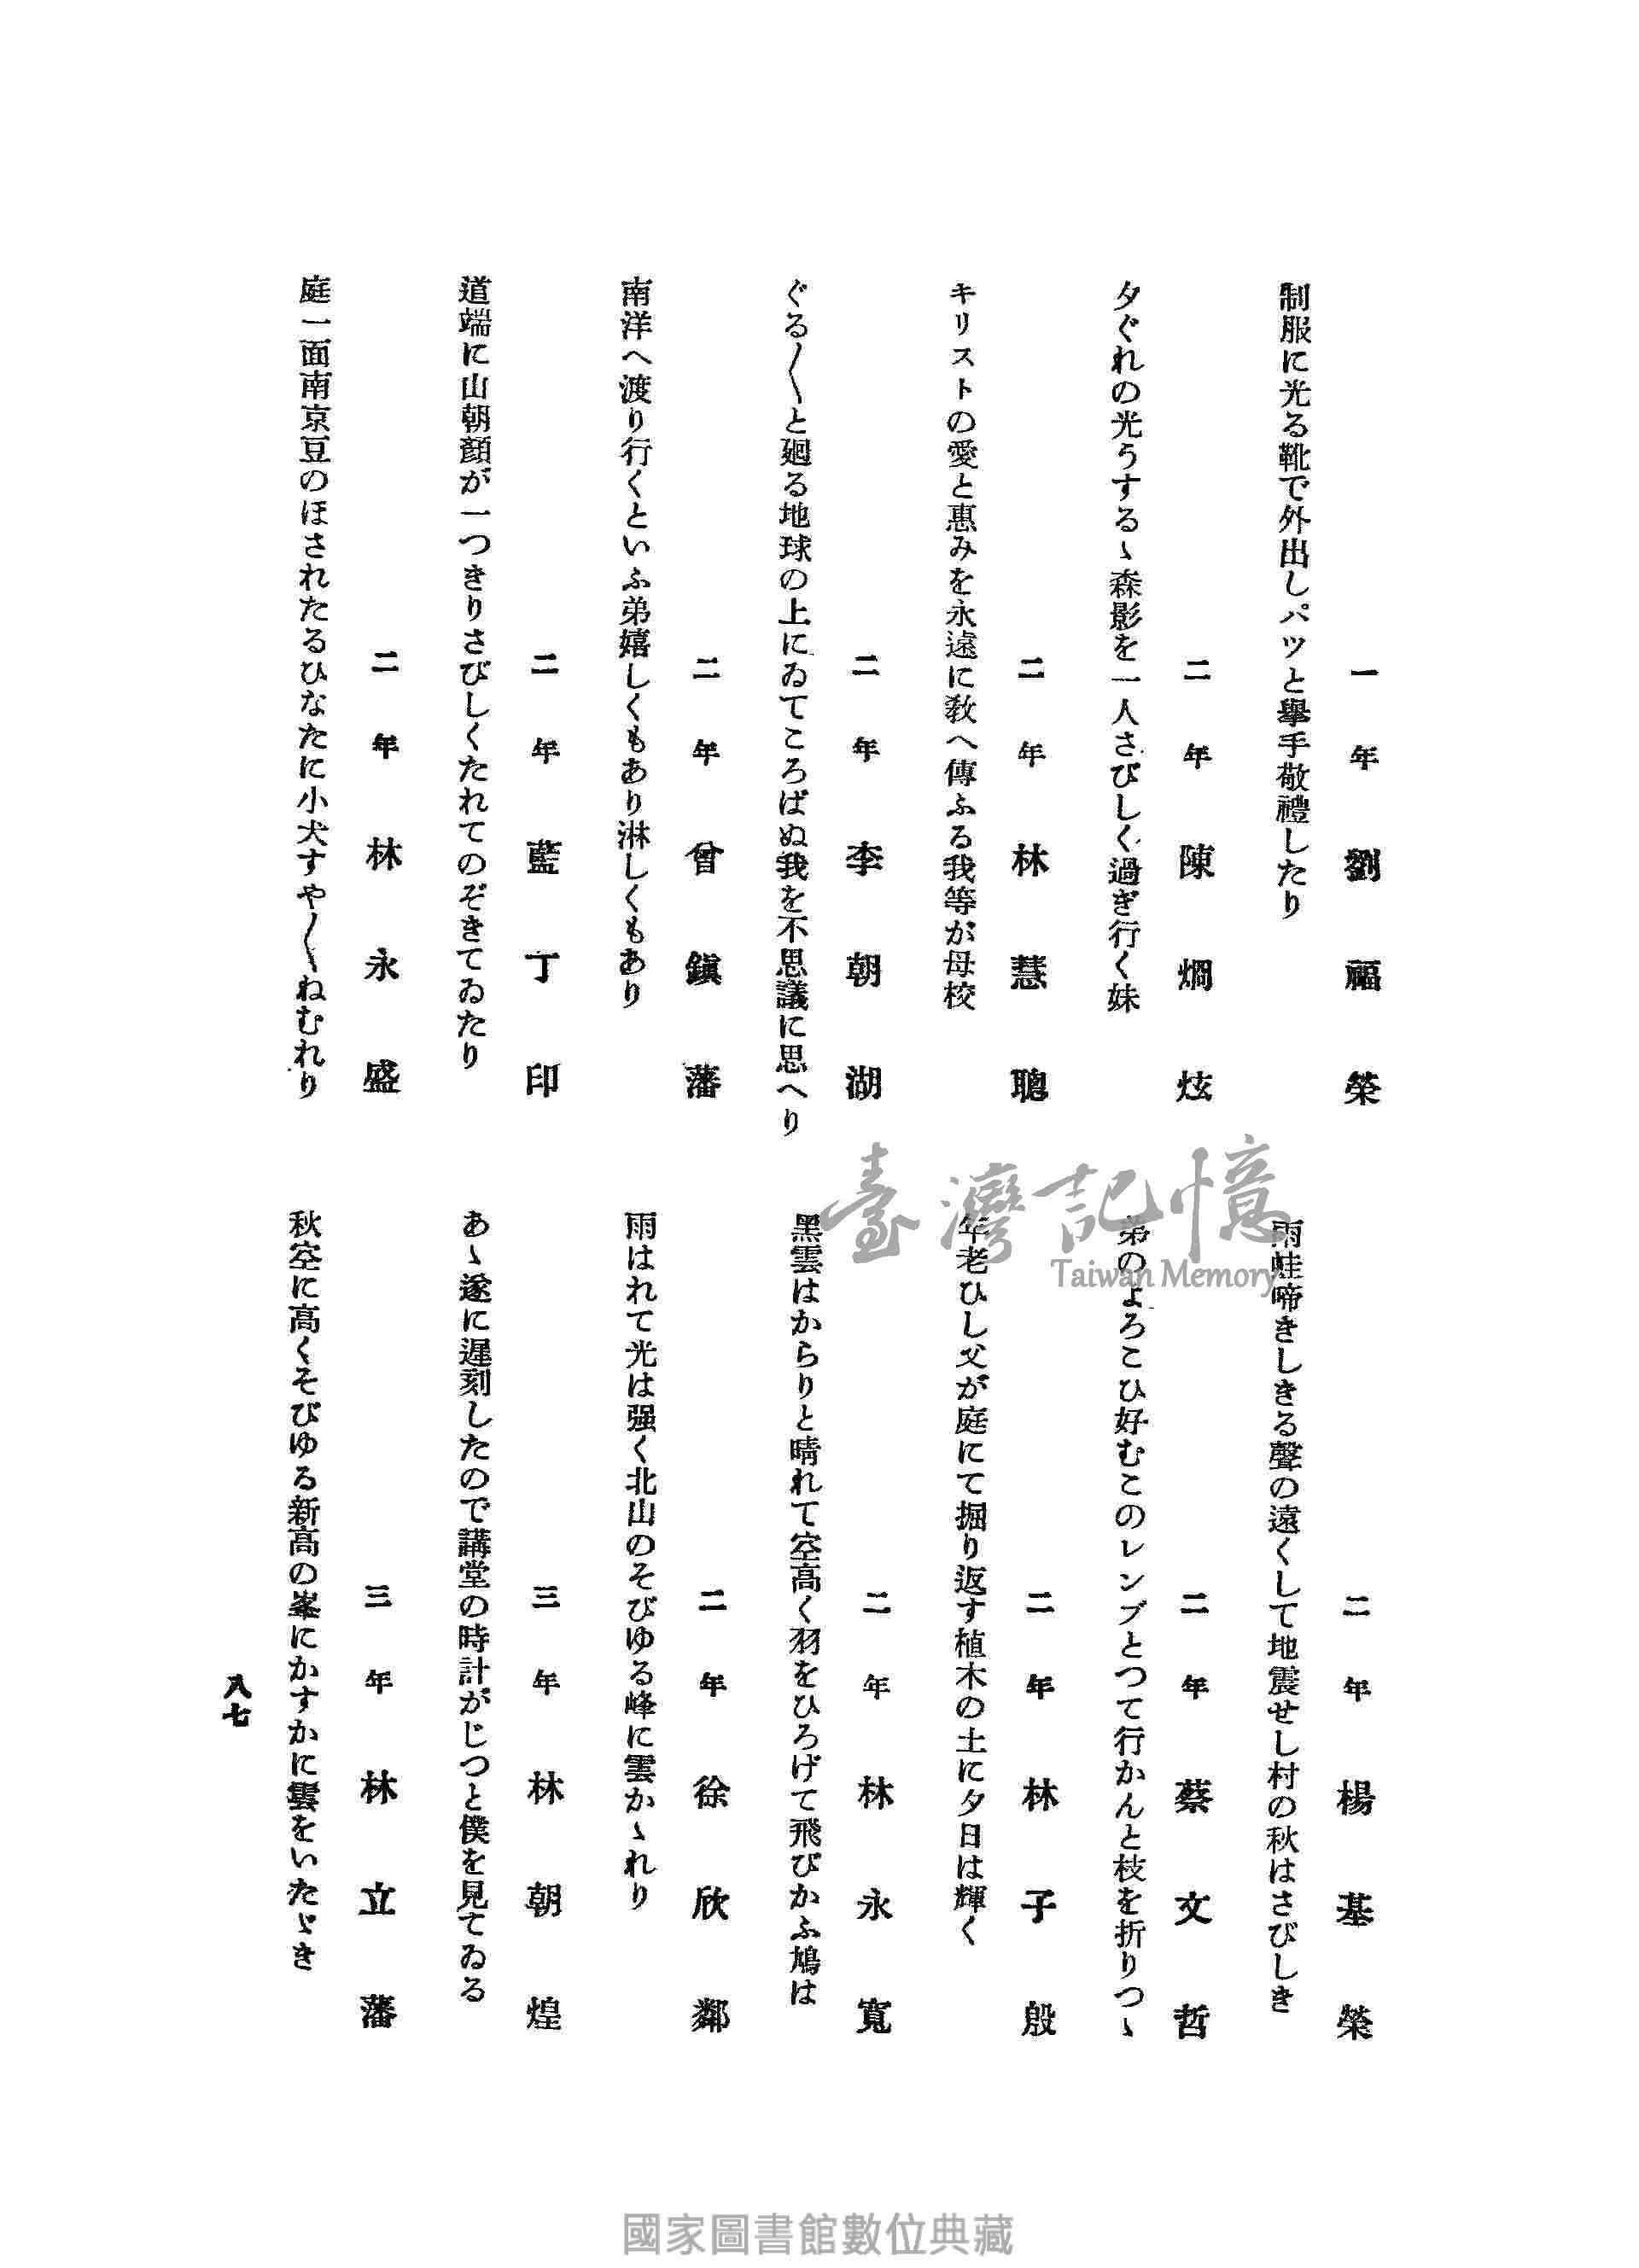 一年 劉福榮
制服に光る靴で外出しパツと擧手敬禮したり
二年 陳烱炫
夕ぐれの光うするゝ森影を一人さびしく過ぎ行く妹
二年 林慧聰
キリストの愛と惠みを永遠に敎へ傳ふる我等が母校
二年 李朝湖
ぐる〱と廻る地球の上にゐてころばぬ我を不思議に思へり
二年 曾鎭藩
南洋へ渡り行くといふ弟嬉しくもあり淋しくもあり
二年 藍丁印
道端に山朝顔が一つきりさびしくたれてのぞきてゐたり
二年 林永盛
庭一面南京豆のほされたるひなたに小犬すや〱ねむれり
二年 楊基榮
雨蛙啼きしきる聲の遠くして地震せし村の秋はさびしき
二年 蔡文哲
弟のよろこひ好むこのレンブとつて行かんと枝を折りつゝ
二年 林子殷
年老ひし父が庭にて掘り返す植木の土に夕日は輝く
二年 林永寬
黑雲はからりと晴れて空高く羽をひろげて飛びかふ鳩は
二年 徐欣鄰
雨はれて光は强く北山のそびゆる峰に雲かゝれり
三年 林朝煌
あゝ遂に遲刻したので講堂の時計がじつと僕を見てゐる
三年 林立藩
秋空に高くそびゆる新高の峯にかすかに雲をいたゞき
八七
臺灣記憶
Taiwan Memory
國家圖書館數位典藏